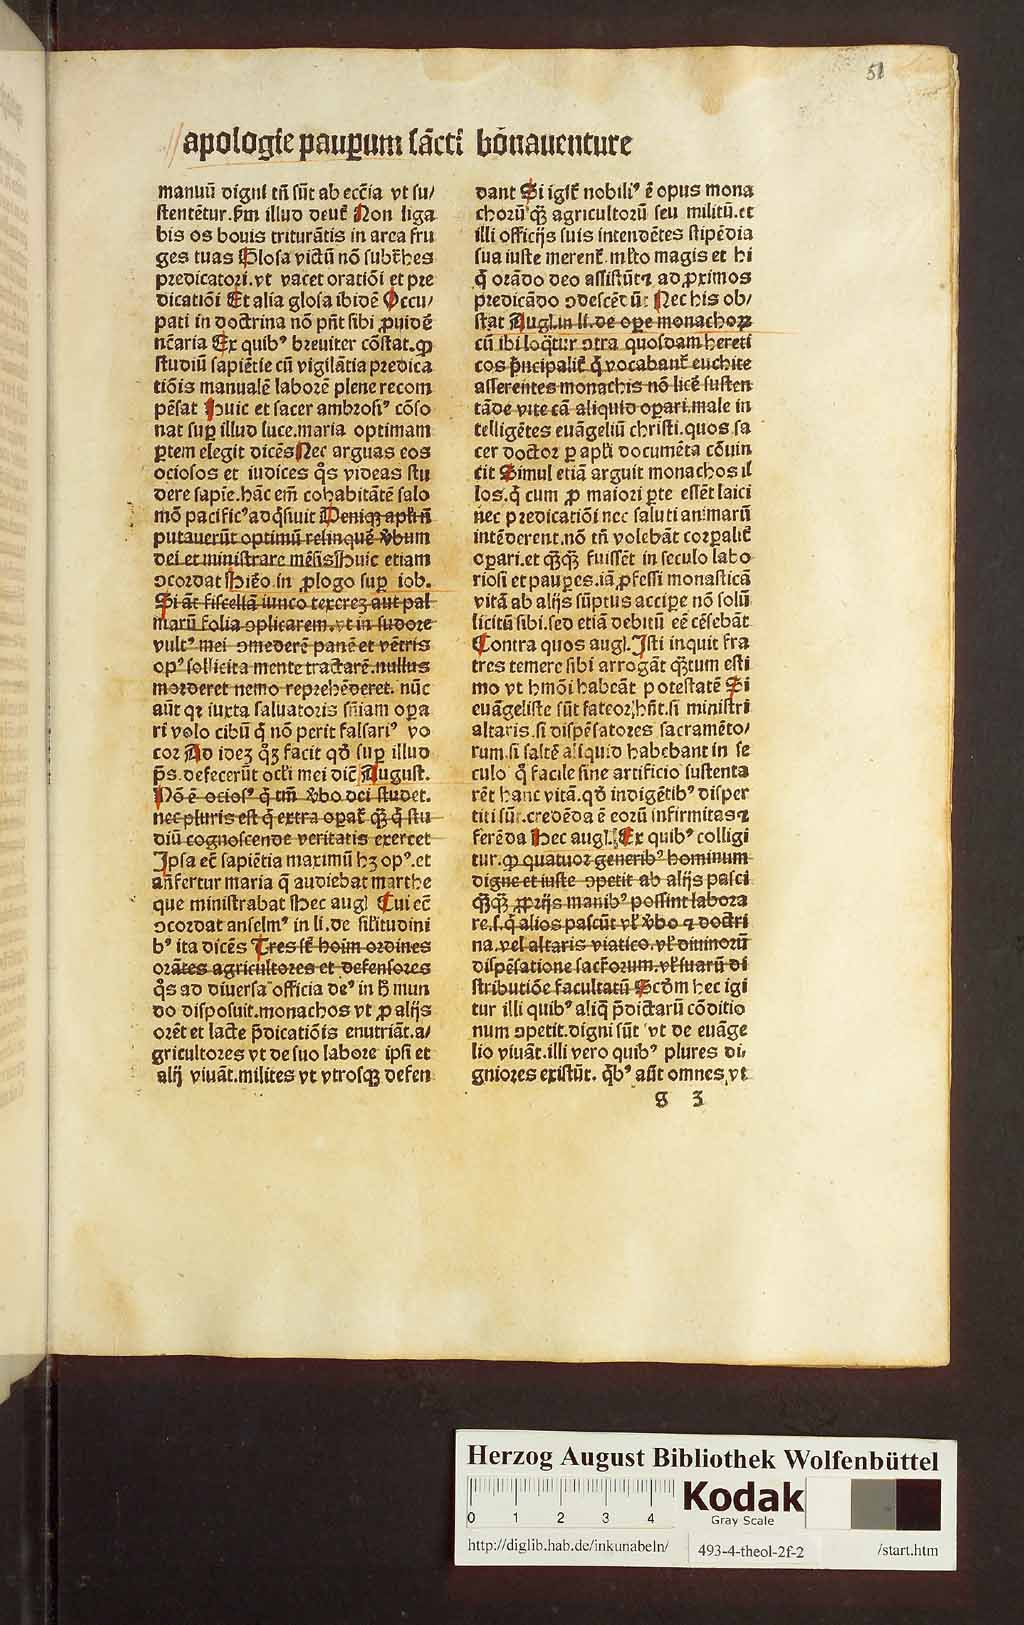 51
apologie pauꝑum sācti bōnauenture
manuū digni tn̄ sūt ab ecc̄ia vt su/
stentētur.p̄m illud deut̄ Non liga
bis os bouis triturātis in area fru
ges tuas Glosa victū nō subt̄hes
predicatori.vt vacet oratiōi et pre
dicatiōi Et alia glosa ibidē Occu/
pati in doctrina nō pn̄t sibi ꝓuidē
nc̄aria Ex quibꝰ breuiter cōstat.ꝙ
studiū sapiētie cū vigilātia predica
tiōis manualē laborē plene recom
pēsat Huic et sacer ambrosiꝰ cōso
nat suꝑ illud luce.maria optimam
ꝑtem elegit dicēs Nec arguas eos
ociosos et iudices q̄s videas stu
dere sapīe.hāc em̄ cohabitātē salo
mō pacificꝰ adq̄siuit Deniqꝫ apl̄i n̄
putauerūt optimū relinquē v̄bum
dei et ministrare mēsis Huic etiam
ↄcordat Hiēo in ꝓlogo suꝑ iob.
Si āt fiscellā iunco texereꝫ aut pal
marū folia ↄplicarem.vt in sudore
vultꝰ mei ↄmederē panē et vētris
opꝰ sollicita mente tractarē.nullus
morderet nemo reprehēderet. nūc
aūt qꝛ iuxta saluatoris sn̄iam oꝑa
ri volo cibū q̄ nō perit falsariꝰ vo
cor Ad ideꝫ qͦꝫ facit qd̄ suꝑ illud
p̄s.defecerūt ocl̄i mei dic̄ August.
Nō ē ociosꝰ q̄ tm̄ v̄bo dei studet.
nec pluris est q̄ extra oꝑat̄ qꝫ̄ q̄ stu
diū cognoscende veritatis exercet
Ipsa ec̄ sapiētia maximū hꝫ opꝰ.et
an̄fertur maria q̄ audiebat marthe
que ministrabat Hec augl̄ Cui ec̄
ↄcordat anselmꝰ in li.de sil̄itudini
bꝰ ita dicēs Tres st̄ hoīm ordines
orātes agricultores et defensores
q̄s ad diuersa officia deꝰ in h̄ mun
do disposuit.monachos vt ꝓ alijs
orēt et lacte p̄dicatiōis enutriāt.a/
gricultores vt de suo labore ipsi et
alij viuāt.milites vt vtrosqꝫ defen
dant Si igit̄ nobiliꝰ ē opus mona
chorū qꝫ̄ agricultorū seu militū.et
illi officijs suis intendētes stipēdia
sua iuste merent̄.ml̄to magis et hi
q̄ orādo deo assistūt ⁊ ad ꝓximos
predicādo ↄdescēdūt Nec his ob/
stat Augl̄.in li.de oꝑe monachoꝝ
cū ibi loq̄tur ↄtra quosdam hereti
cos p̄ncipalit̄ q̄ vocabant̄ euchite
asserentes monachis nō licē susten
tāde vite cā aliquid oꝑari.male in
telligētes euāgeliū christi.quos sa
cer doctor ꝑ apl̄i documēta cōuin
cit Simul etiā arguit monachos il
los.q̄ cum ꝓ maiori ꝑte essēt laici
nec predicatiōi nec saluti animarū
intēderent.nō tn̄ volebāt corꝑalit̄
oꝑari.et qꝫ̄qꝫ̄ fuissēt in seculo labo
riosi et pauꝑes.iā ꝓfessi monasticā
vitā ab alijs sūptus accipe nō solū
licitū sibi.sed etiā debitū eē cēsebāt
Contra quos augl̄.Isti inquit fra
tres temere sibi arrogāt qꝫ̄tum esti
mo vt hmōi habeāt potestatē Si
euāgeliste sūt fateor hn̄t.si ministri
altaris.si dispēsatores sacramēto/
rum.si saltē aliquid habebant in se
culo q̄ facile sine artificio sustenta
rēt hanc vitā.qd̄ indigētibꝰ disper
titi sūt.credēda ē eorū infirmitas ⁊
ferēda Hec augl̄. Ex quibꝰ colligi
tur.ꝙ quatuor generibꝰ hominum
digne et iuste ↄpetit ab alijs pasci
qꝫ̄qꝫ̄ ꝓprijs manibꝰ possint labora
re.s.q̄ alios pascūt vl̄ v̄bo ⁊ doctri
na.vel altaris viatico.vl̄ diuinorū
dispēsatione sacr̄orum.vl̄ suarū di
stributiōe facultatū Scd̄m hec igi
tur illi quibꝰ aliq̄ p̄dictarū cōditio
num ↄpetit.digni sūt vt de euāge
lio viuāt.illi vero quibꝰ plures di/
gniores existūt. q̄bꝰ aūt omnes vt
g 3
Herzog August Bibliothek Wolfenbüttel
0 1 2 3 4
Kodak
Gray Scale
http://diglib.hab.de/inkunabeln/ 493-4-theol-2f-2 /start.htm